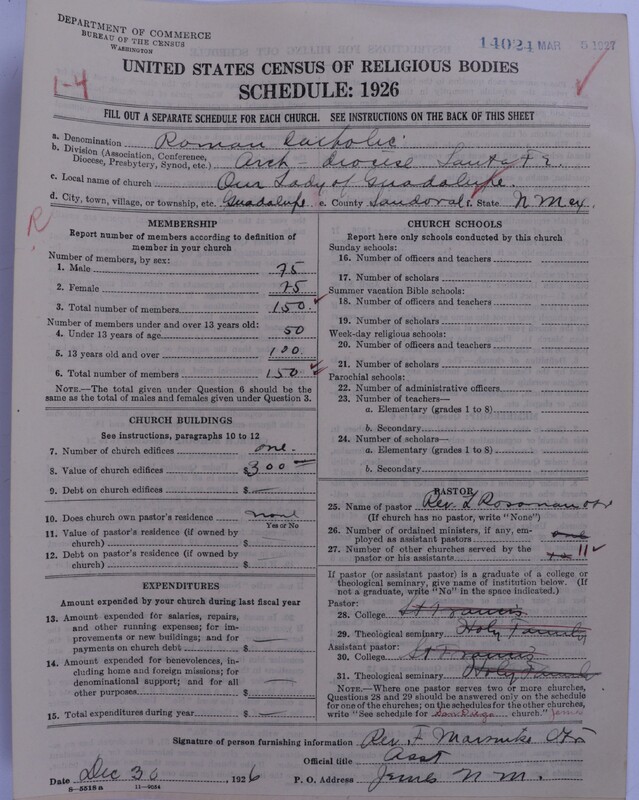 DEPARTMENT OF COMMERCE
BUREAU OF THE CENSUS
WASHINGTON
14024 MAR 5 1927
1-4
UNITED STATES CENSUS OF RELIGIOUS BODIES
SCHEDULE: 1926
FILL OUT A SEPARATE SCHEDULE FOR EACH CHURCH. SEE INSTRUCTIONS ON THE BACK OF THIS SHEET
a. Denomination Roman Catholic
b. Division (Association, Conference, Diocese, Presbytery, Synod, etc.) Arch-diocese Santa Fe.
c. Local name of church Our Lady of Guadalupe.
d. City, town, village, or township, etc. Guadalupe e. County Sandoval f. State N Mex.
R
MEMBERSHIP
Report number of members according to definition of
member in your church
Number of members, by sex:
1. Male 75
2. Female 75
3. Total number of members 150
Number of members under and over 13 years old:
4. Under 13 years of age 50
5. 13 years old and over 100
6. Total number of members 150
NOTE.—The total given under Question 6 should be
the same as the total of males and females given under Question 3.
CHURCH BUILDINGS
See instructions, paragraphs 10 to 12
7. Number of church edifices one.
8. Value of church edifices $300
9. Debt on church edifices $ —
10. Does church own pastor's residence none
Yes or No
11. Value of pastor's residence (if owned by
church) $ —
12. Debt on pastor's residence (if owned by
church) $ —
EXPENDITURES
Amount expended by your church during last fiscal year
13. Amount expended for salaries, repairs,
and other running expenses; for im-
provements or new buildings; and for
payments on church debt $ —
14. Amount expended for benevolences,
including home and foreign missions; for
denominational support; and for all
other purposes $ —
15. Total expenditures during year $ —
CHURCH SCHOOLS
Report here only schools conducted by this church
Sunday schools:
16. Number of officers and teachers
17. Number of scholars
Summer vacation Bible schools:
18. Number of officers and teachers
19. Number of scholars
Week-day religious schools:
20. Number of officers and teachers
21. Number of scholars
Parochial schools:
22. Number of administrative officers
23. Number of teachers—
a. Elementary (grades 1 to 8)
b. Secondary
24. Number of scholars—
a. Elementary (grades 1 to 8)
b. Secondary
PASTOR
25. Name of pastor Rev. L Rosonau
(If church has no pastor, write "None")
26. Number of ordained ministers, if any, em-
ployed as assistant pastors one
27. Number of other churches served by the
pastor or his assistants 11
If pastor (or assistant pastor) is a graduate of a college or
theological seminary, give name of institution below. (If
not a graduate, write "No" in the space indicated.)
Pastor:
28. College St Francis
29. Theological seminary Holy Family
Assistant pastor:
30. College St Francis
31. Theological seminary Holy Family
NOTE.—Where one pastor serves two or more churches,
Questions 28 and 29 should be answered only on the schedule
for one of the churches; on the schedules for the other churches,
write "See schedule for San Diego church." Jemez
Signature of person furnishing information Rev. F Marnuke
Official title Asst
Date Dec 30, 1926 P. O. Address Jemes N M.
8-5518 a 11-9024